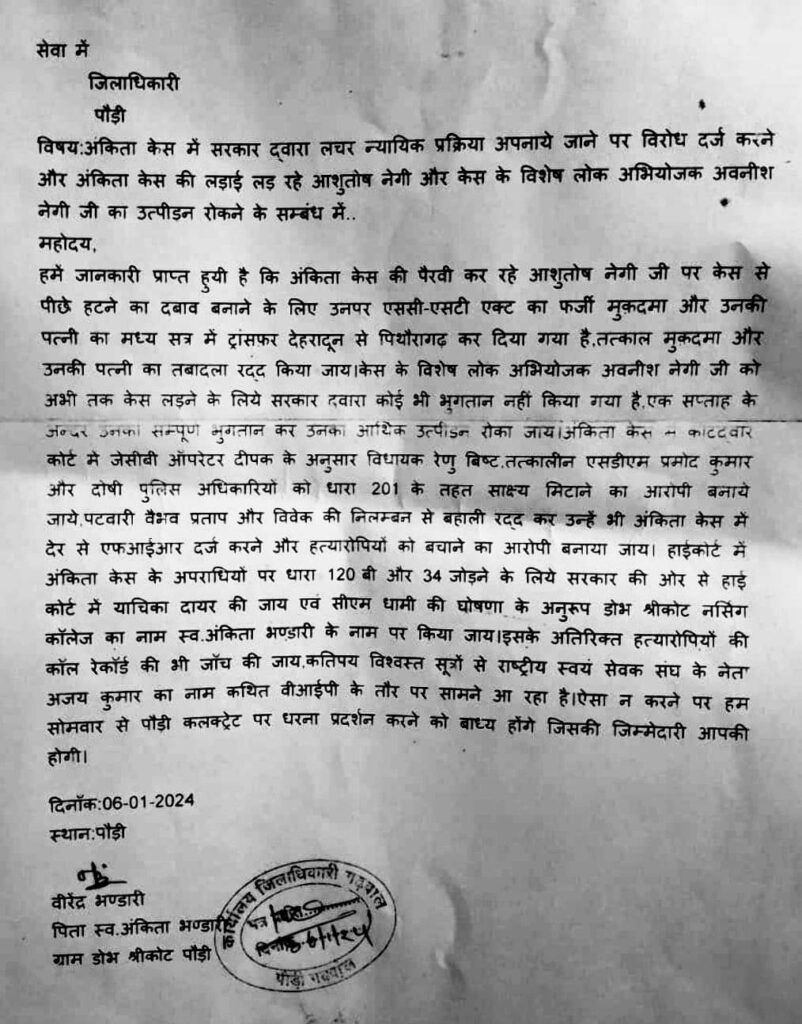 सेवा में
जिलाधिकारी
पौड़ी
विषय:अंकिता केस में सरकार द्वारा लचर न्यायिक प्रक्रिया अपनाये जाने पर विरोध दर्ज करने
और अंकिता केस की लड़ाई लड़ रहे आशुतोष नेगी और केस के विशेष लोक अभियोजक अवनीश
नेगी जी का उत्पीड़न रोकने के सम्बंध में..
महोदय,
हमें जानकारी प्राप्त हुयी है कि अंकिता केस की पैरवी कर रहे आशुतोष नेगी जी पर केस से
पीछे हटने का दबाव बनाने के लिए उनपर एससी-एसटी एक्ट का फर्जी मुक़दमा और उनकी
पत्नी का मध्य सत्र में ट्रांसफ़र देहरादून से पिथौरागढ़ कर दिया गया है,तत्काल मुक़दमा और
उनकी पत्नी का तबादला रद्द किया जाय।केस के विशेष लोक अभियोजक अवनीश नेगी जी को
अभी तक केस लड़ने के लिये सरकार दवारा कोई भी भुगतान नहीं किया गया है,एक सप्ताह के
अन्दर उनका सम्पूर्ण भुगतान कर उनका आर्थिक उत्पीड़न रोका जाय।अंकिता केस में कोटद्वार
कोर्ट मे जेसीबी ऑपरेटर दीपक के अनुसार विधायक रेणु बिष्ट,तत्कालीन एसडीएम प्रमोद कुमार
और दोषी पुलिस अधिकारियों को धारा 201 के तहत साक्ष्य मिटाने का आरोपी बनाये
जाये,पटवारी वैभव प्रताप और विवेक की निलम्बन से बहाली रद्द कर उन्हें भी अंकिता केस में
देर से एफआईआर दर्ज करने और हत्यारोपियों को बचाने का आरोपी बनाया जाय। हाईकोर्ट में
अंकिता केस के अपराधियों पर धारा 120 बी और 34 जोड़ने के लिये सरकार की ओर से हाई
कोर्ट में याचिका दायर की जाय एवं सीएम धामी की घोषणा के अनुरूप डोभ श्रीकोट नर्सिंग
कॉलेज का नाम स्व.अंकिता भण्डारी के नाम पर किया जाय।इसके अतिरिक्त हत्यारोपियों की
कॉल रेकॉर्ड की भी जाँच की जाय,कतिपय विश्वस्त सूत्रों से राष्ट्रीय स्वयं सेवक संघ के नेता
अजय कुमार का नाम कथित वीआईपी के तौर पर सामने आ रहा है।ऐसा न करने पर हम
सोमवार से पौड़ी कलक्ट्रेट पर धरना प्रदर्शन करने को बाध्य होंगे जिसकी जिम्मेदारी आपकी
होगी।
दिनाँक:06-01-2024
स्थान:पौड़ी
वीरेंद्र भण्डारी
पिता स्व.अंकिता भण्डारी
ग्राम डोभ श्रीकोट पौड़ी
कार्यालय जिलाधिकारी गढ़वाल
पत्र
दिनांक 6/1/24
पौड़ी गढ़वाल